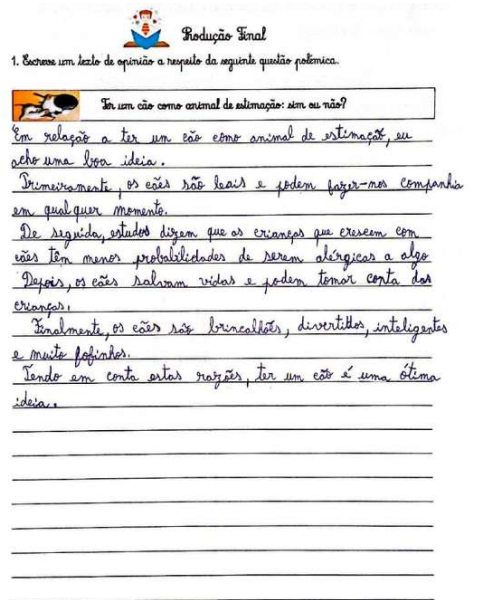 Produção Final
1. Escreve um texto de opinião a respeito da seguinte questão polémica.
Ter um cão como animal de estimação: sim ou não?
Em relação a ter um cão como animal de estimação, eu
acho uma boa ideia.
Primeiramente, os cães são leais e podem fazer-nos companhia
em qualquer momento.
De seguida, estudos dizem que as crianças que crescem com
cães têm menos probalilidades de serem alérgicas a algo
Depois, os cães salvam vidas e podem tomar conta das
crianças.
Finalmente, os cães são brincalhões, divertidos, inteligentes
e muito fofinhos.
Tendo em conta estas razões, ter um cão é uma ótima
ideia.